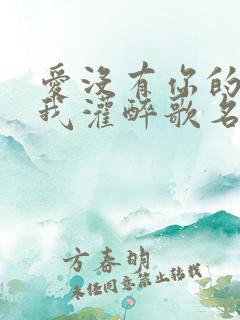 愛没有你的
我灌醉歌名
方春明
未经同意禁止转载